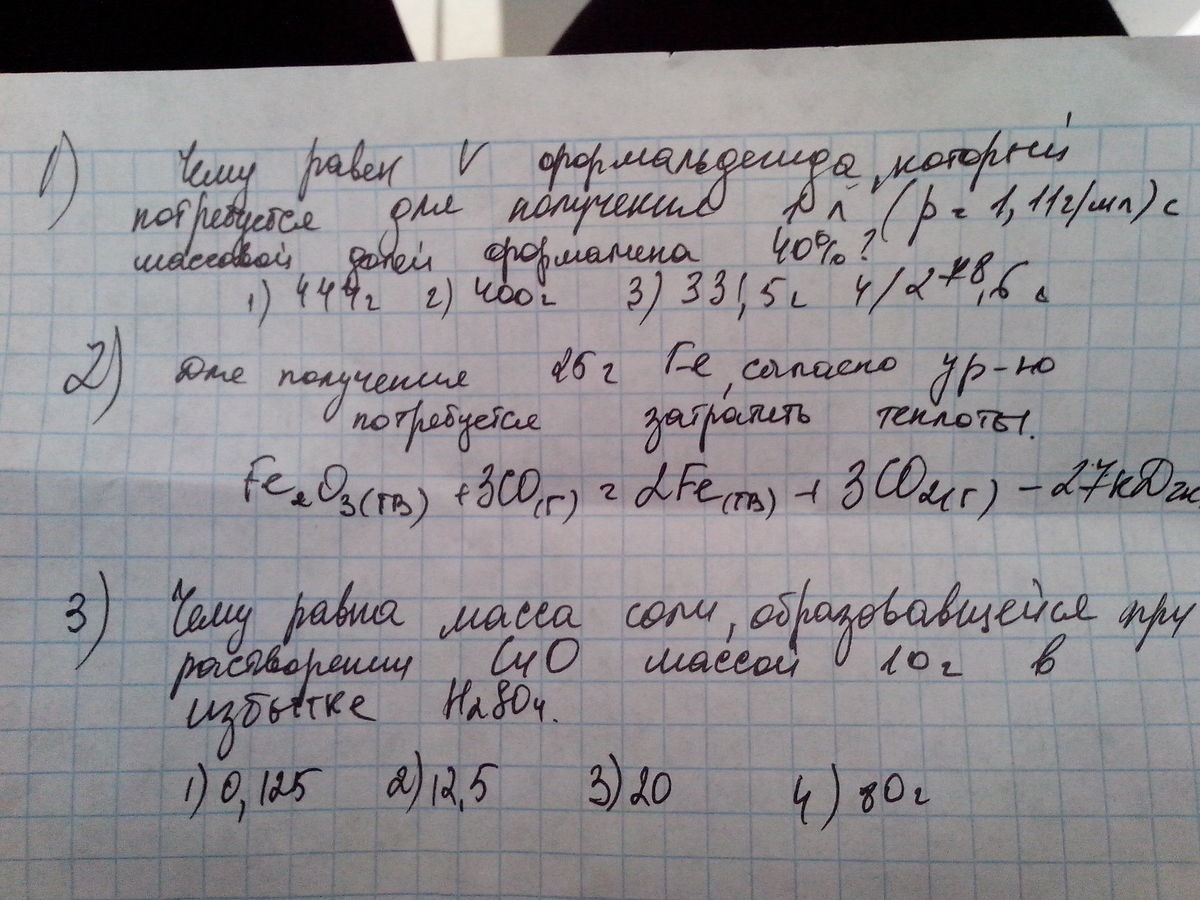 1) Чему равен V формальдегида, который
потребуется для получения 1 л (p = 1,11 г/мл) с
массовой долей формалина 40%?
1) 444г 2) 400г 3) 331,5 г 4) 278,6 г
2) Для получения 26 г Fe, согласно ур-ю
потребуется затратить теплоты.
Fe₂O₃(тв) + 3CO(г) = 2Fe(тв) + 3CO₂(г) - 27кДж
3) Чему равна масса соли, образовавщейся при
растворении CuO массой 10 г в
избытке H₂SO₄.
1) 0,125 2) 12,5 3) 20 4) 80г